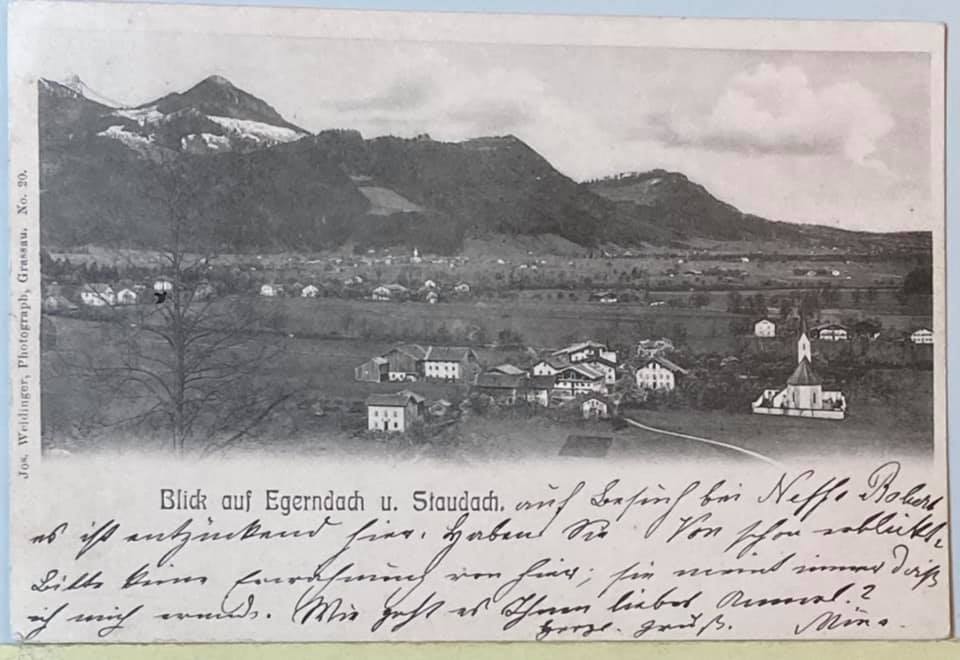 Jos. Weidinger, Photograph, Grassau. No. 20.
Blick auf Egerndach u. Staudach. auf Besuch bei Neffe Robert
es ist entzückend hier. Haben Sie Von schon erblickt.
Bitte keine Erwähnung von hier; sie meint immer daß
ich mich Wie geht es Ihnen liebes
herzl. Gruß. Mina.